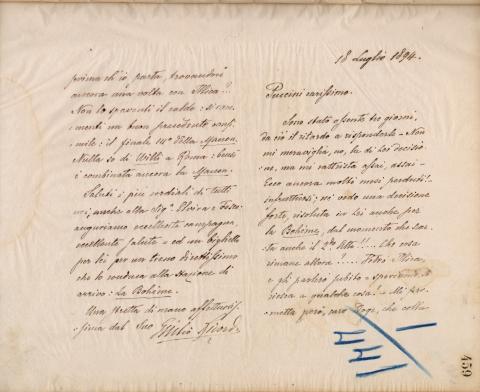 18 Luglio 1894.
Puccini carissimo.
Sono stato assente tre giorni,
da ciò il ritardo a risponderle - Non
mi meraviglia, no, la di Lei decisio-
ne, ma mi rattrista assai, assai -
Ecco ancora molti mesi perduti!
infruttuosi; nè vedo una decisione
forte, risoluta in Lei anche per
la Bohème, dal momento che scar-
ta anche il 2do Atto!... Che cosa
rimane allora?.... Vedrò Illica,
e gli parlerò subito - sperando di
a qualche cosa! - Mi per-
metta però, caro Doge, che colla
prima ch'io parta, trovandomi
ancora una volta con Illica?..
Non lo spaventi il caldo: si ram-
menti un buon precedente consi-
mile: il finale IIIo della Manon.
Nulla so di a Roma: bensì
è combinata ancora la Manon.
Saluti i più cordiali di tutti
noi, anche alla Sig.a Elvira e Fosca:
auguriamo eccellente campagna,
eccellente salute - ed un biglietto
per lei per un treno direttissimo
che lo conduca alla stazione di
arrivo: La Bohème.
Una stretta di mano affettuosis-
sima dal Suo Giulio Ricordi
459